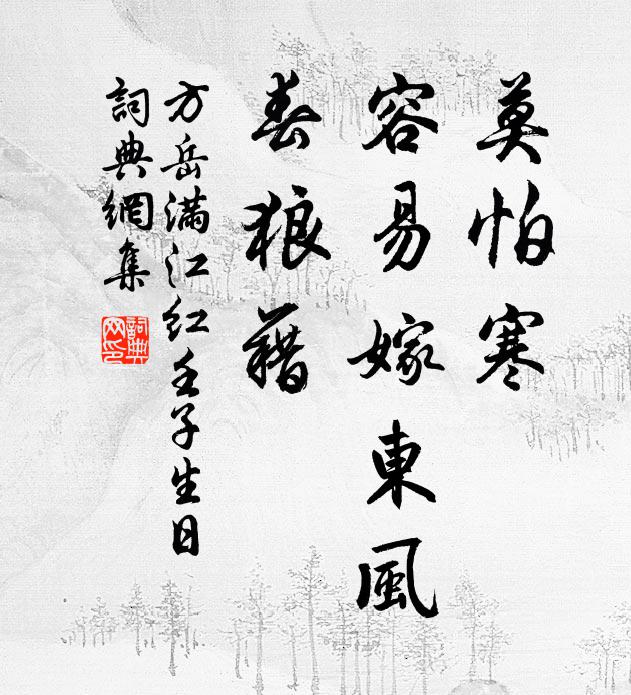 莫怕寒
容易嫁東風
春狼藉
方岳滿江紅壬子生日
詞典網集
詞典网印